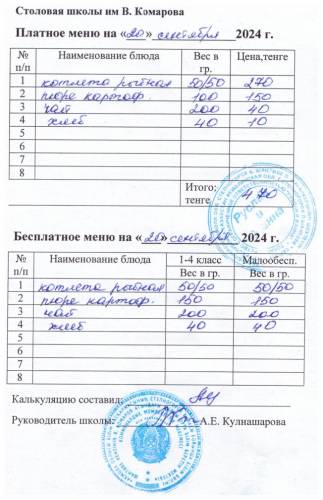 Столовая школы им В. Комарова
Платное меню на «20» сентября 2024 г.
№ п/п Наименование блюда Вес в гр. Цена,тенге
1 котлета рыбная 50/50 270
2 пюре картоф. 100 150
3 чай 200 40
4 хлеб 40 10
5
6
7
8
Итого: тенге 470
Бесплатное меню на «20» сентября 2024 г.
№ п/п Наименование блюда 1-4 класс Малообесп.
Вес в гр. Вес в гр.
1 котлета рыбная 50/50 50/50
2 пюре картоф. 150 150
3 чай 200 200
4 хлеб 40 40
5
6
7
8
Калькуляцию составил:
Руководитель школы: А.Е. Кулнашарова